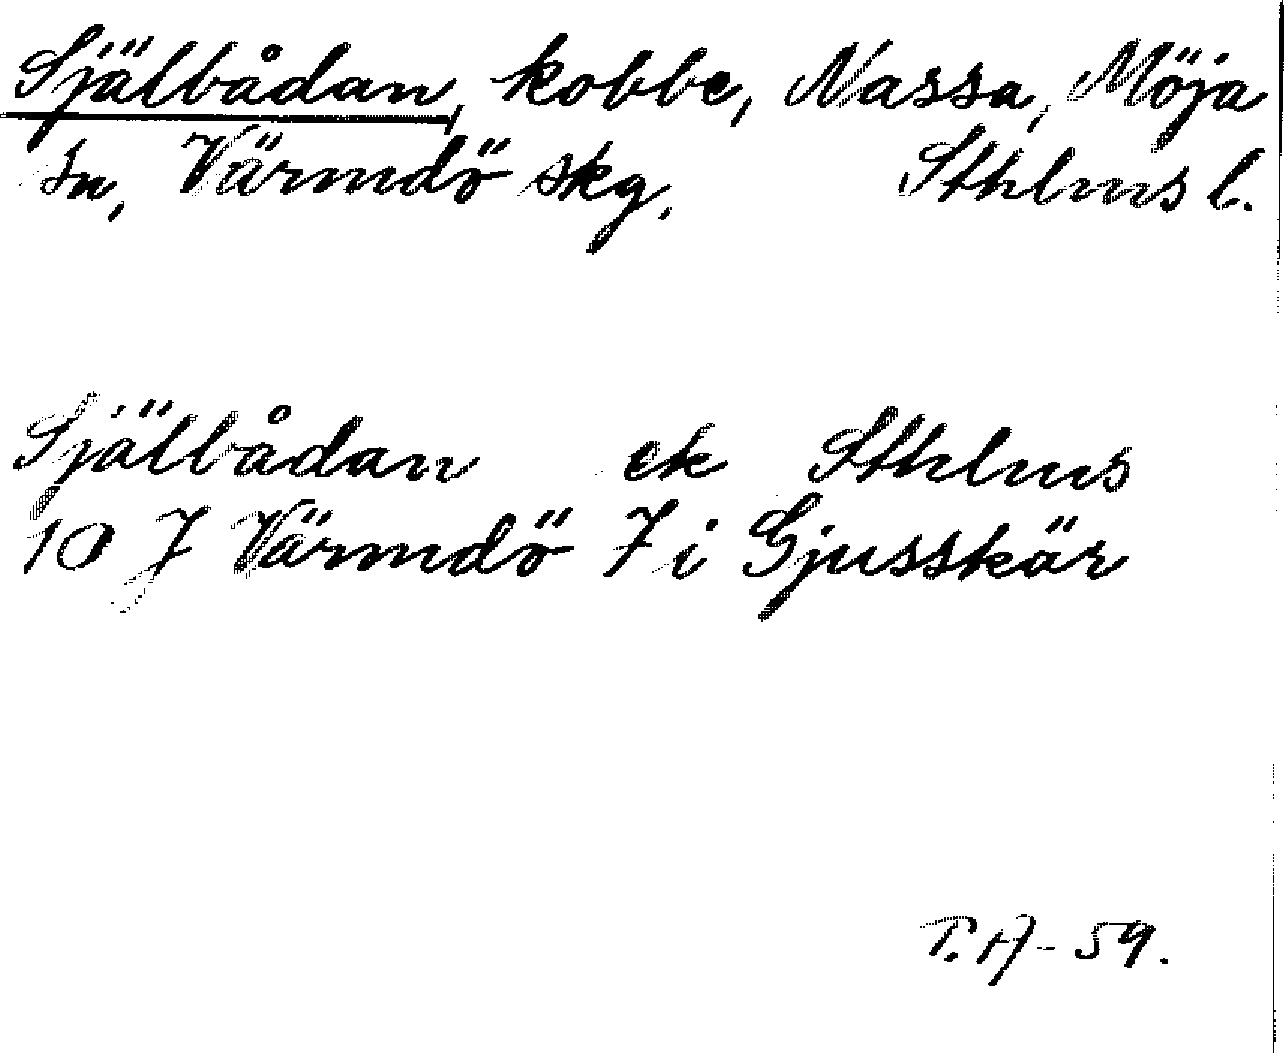 Själbådan, kobbe, Nassa, Möja
sn, Värmdö skg, Sthlms l.
Själbådan ek Sthlms
10 J Värmdö 7 i Gjusskär
T. A - 59.